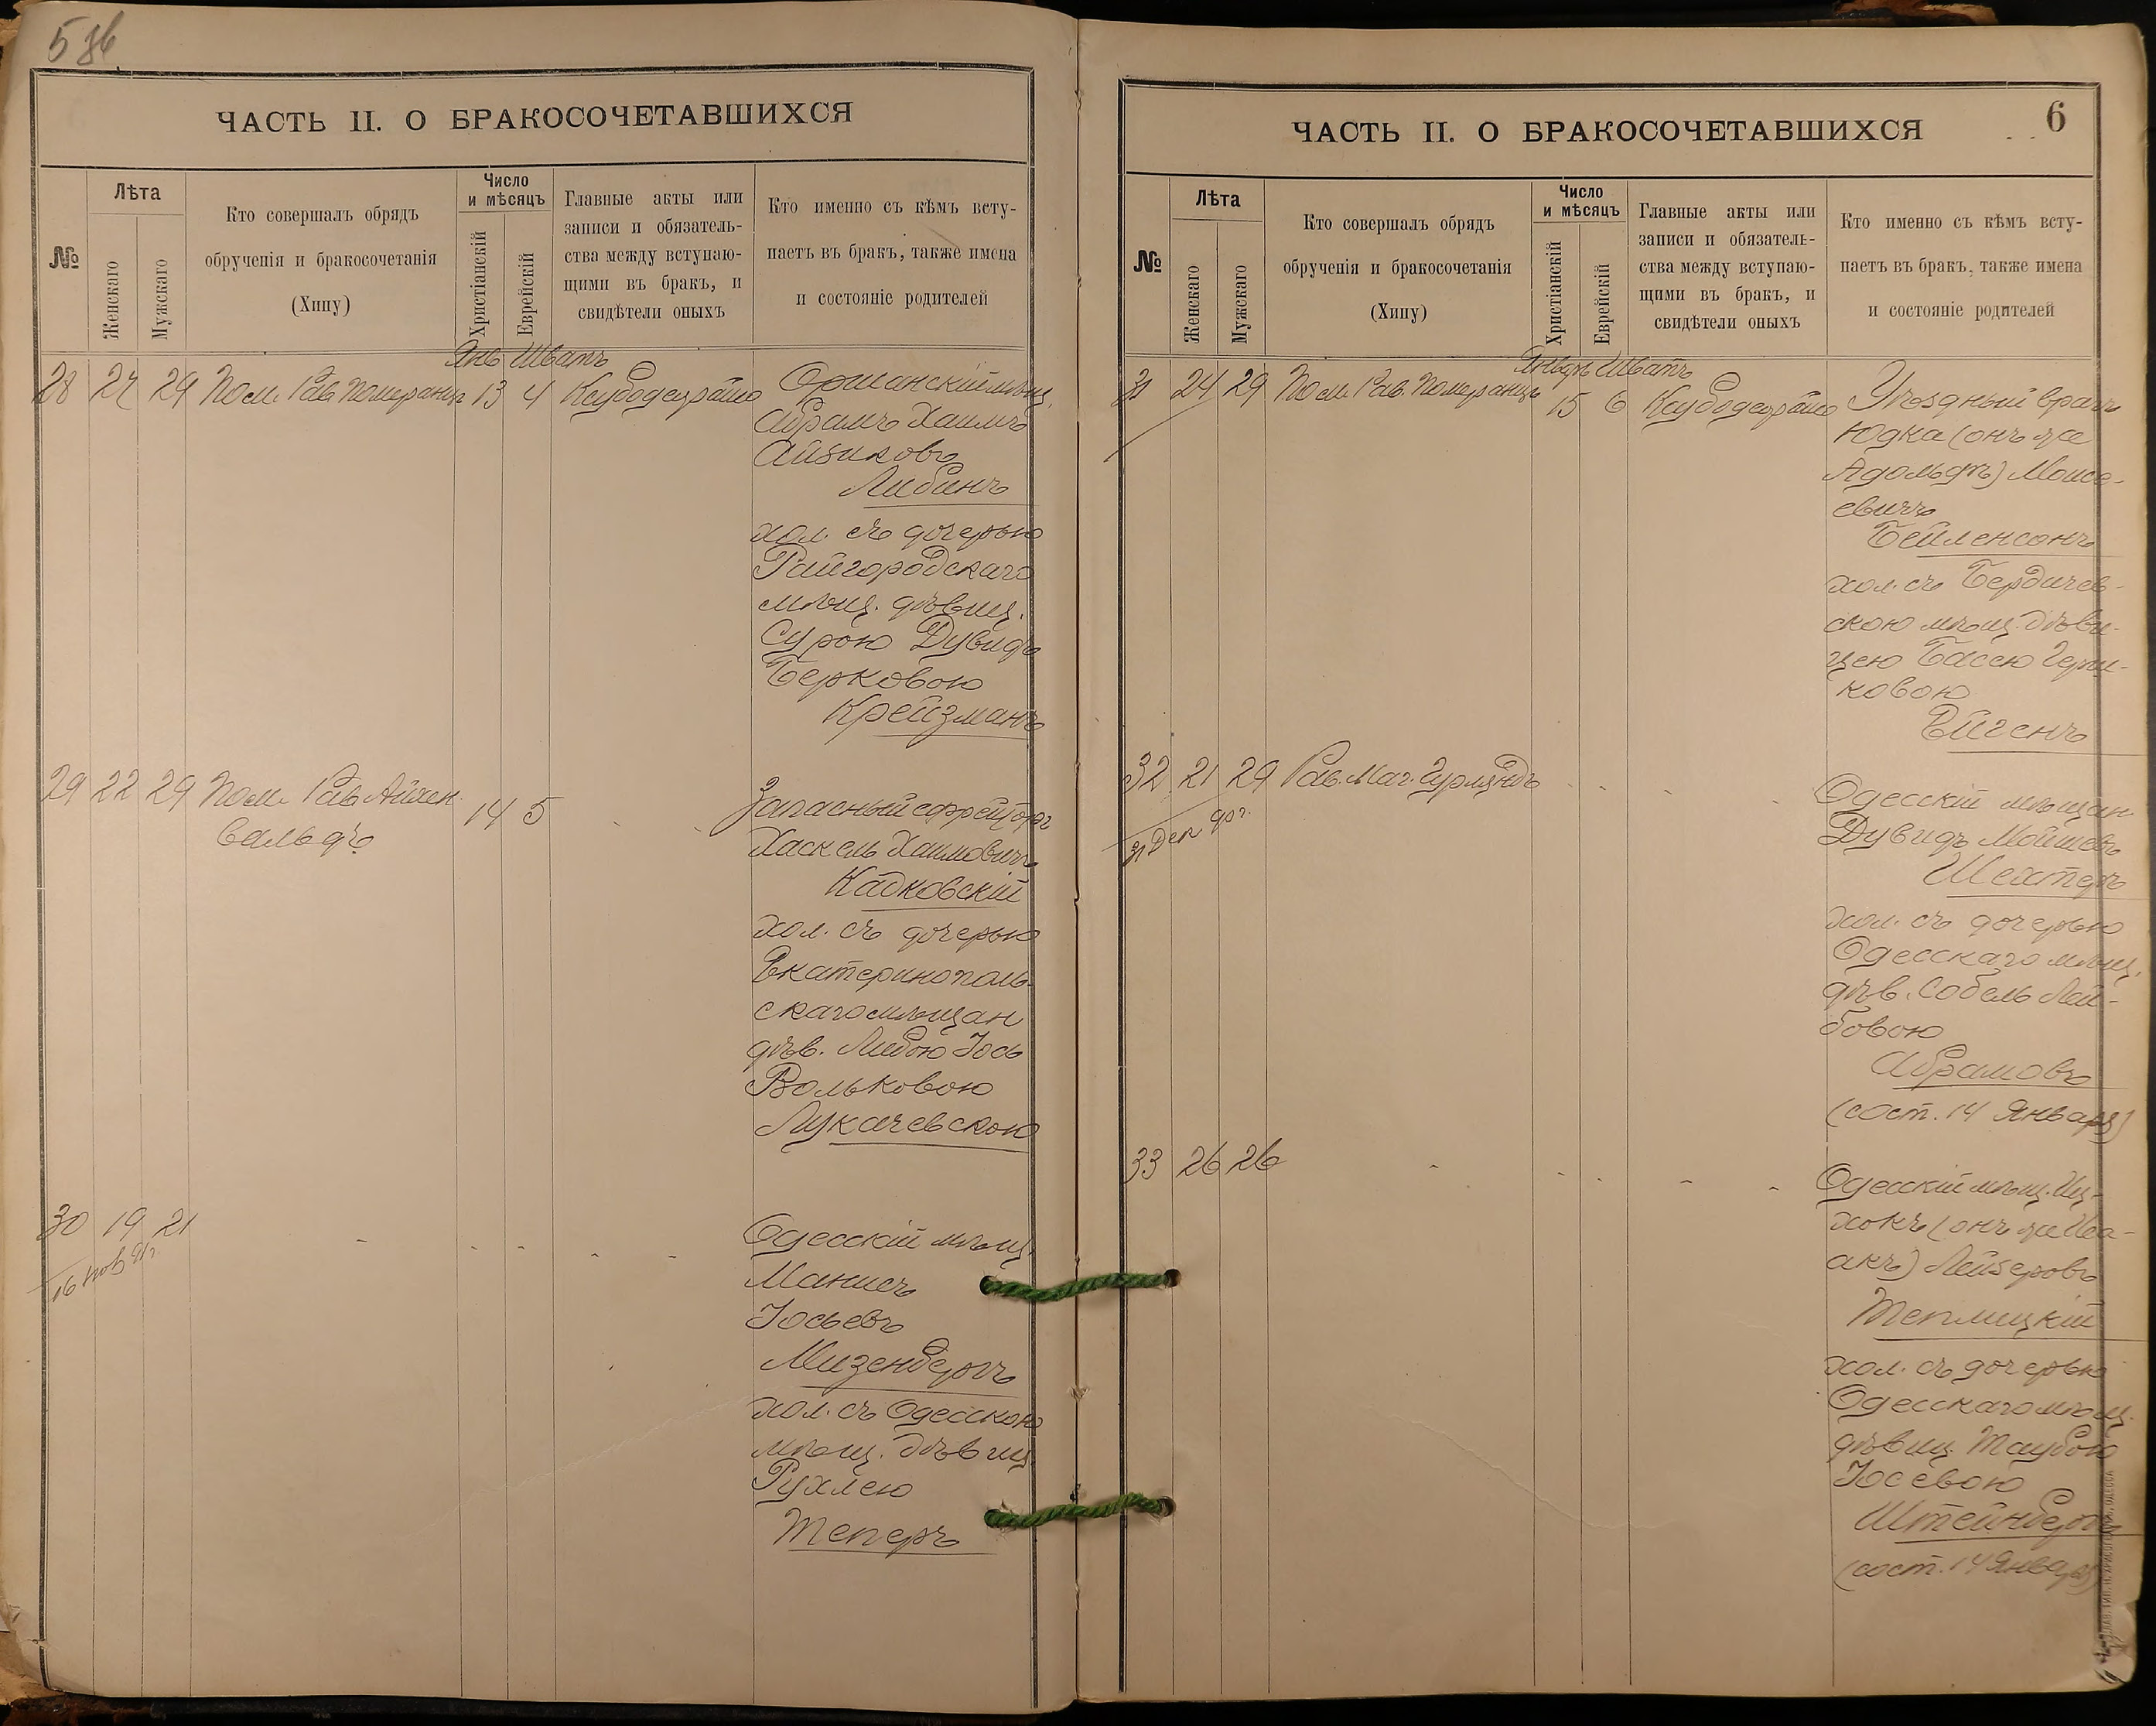 5 об.
ЧАСТЬ II. О БРАКОСОЧЕТАВШИХСЯ
№
Лѣта
Женскаго
Мужскаго
Кто совершалъ обрядъ
обрученія и бракосочетанія
(Хипу)
Число
и мѣсяцъ
Христіанскій
Еврейскій
Главные акты или
записи и обязатель-
ства между вступаю-
щими въ бракъ, и
свидѣтели оныхъ
Кто именно съ кѣмъ всту-
паетъ въ бракъ, также имена
и состояніе родителей
Янв Шватъ
28 29 Пом. Рав. Померанцъ 13 4
Оршанскій мѣщ.
Абрамъ Хаимъ
Айзиковъ
Либинъ
хол. съ дочерью
Райгородскаго
мѣщ. дѣвиц.
Сурою Дувидъ
Берковою
Крейзманъ
29 22 29 Пом. Рав Айхен
вальдъ
14 5
Запасный ефрейторъ
Хаскель Хаимовичъ
Кадковскій
хол. съ дочерью
Екатеринополь-
скаго мѣщан
дѣв. Либою Іось
Вольковою
Лукачевскою
30 19 21
16 нов 91г.
Одесскій мѣщ.
Манисъ
Іосьевъ
Мизенбергъ
хол. съ Одесскою
мѣщ. дѣвиц.
Рухлею
Теперъ
6
ЧАСТЬ II. О БРАКОСОЧЕТАВШИХСЯ
№
Лѣта
Женскаго
Мужскаго
Кто совершалъ обрядъ
обрученія и бракосочетанія
(Хипу)
Число
и мѣсяцъ
Христіанскій
Еврейскій
Главные акты или
записи и обязатель-
ства между вступаю-
щими въ бракъ, и
свидѣтели оныхъ
Кто именно съ кѣмъ всту-
паетъ въ бракъ, также имена
и состояніе родителей
Январь Шватъ
31 24 29 Пом. Рав. Померанцъ 15 6
Уѣздный врачъ
Юдка (онъ же
Адольфъ) Моисе-
евичъ
Бейленсонъ
хол. съ Бердичев-
скою мѣщ. дѣви-
цею Басею Герш-
ковою
Эйгенъ
32 21 29 Рав. Маг. Гурляндъ
Одесскій мѣщан
Дувидъ Мойшевъ
Шехтеръ
хол. съ дочерью
Одесскаго мѣщ.
дѣв. Собель Лей-
бовою
Абрамовъ
(сост. 14 Января)
33 26 26
Одесскій мѣщ. Иц-
хокъ (онъ же Иса-
акъ) Лейзеровъ
Теплицкій
хол. съ дочерью
Одесскаго мѣщ.
дѣвиц. Таубою
Іосевою
Штейнбергъ
(сост. 14 Января)